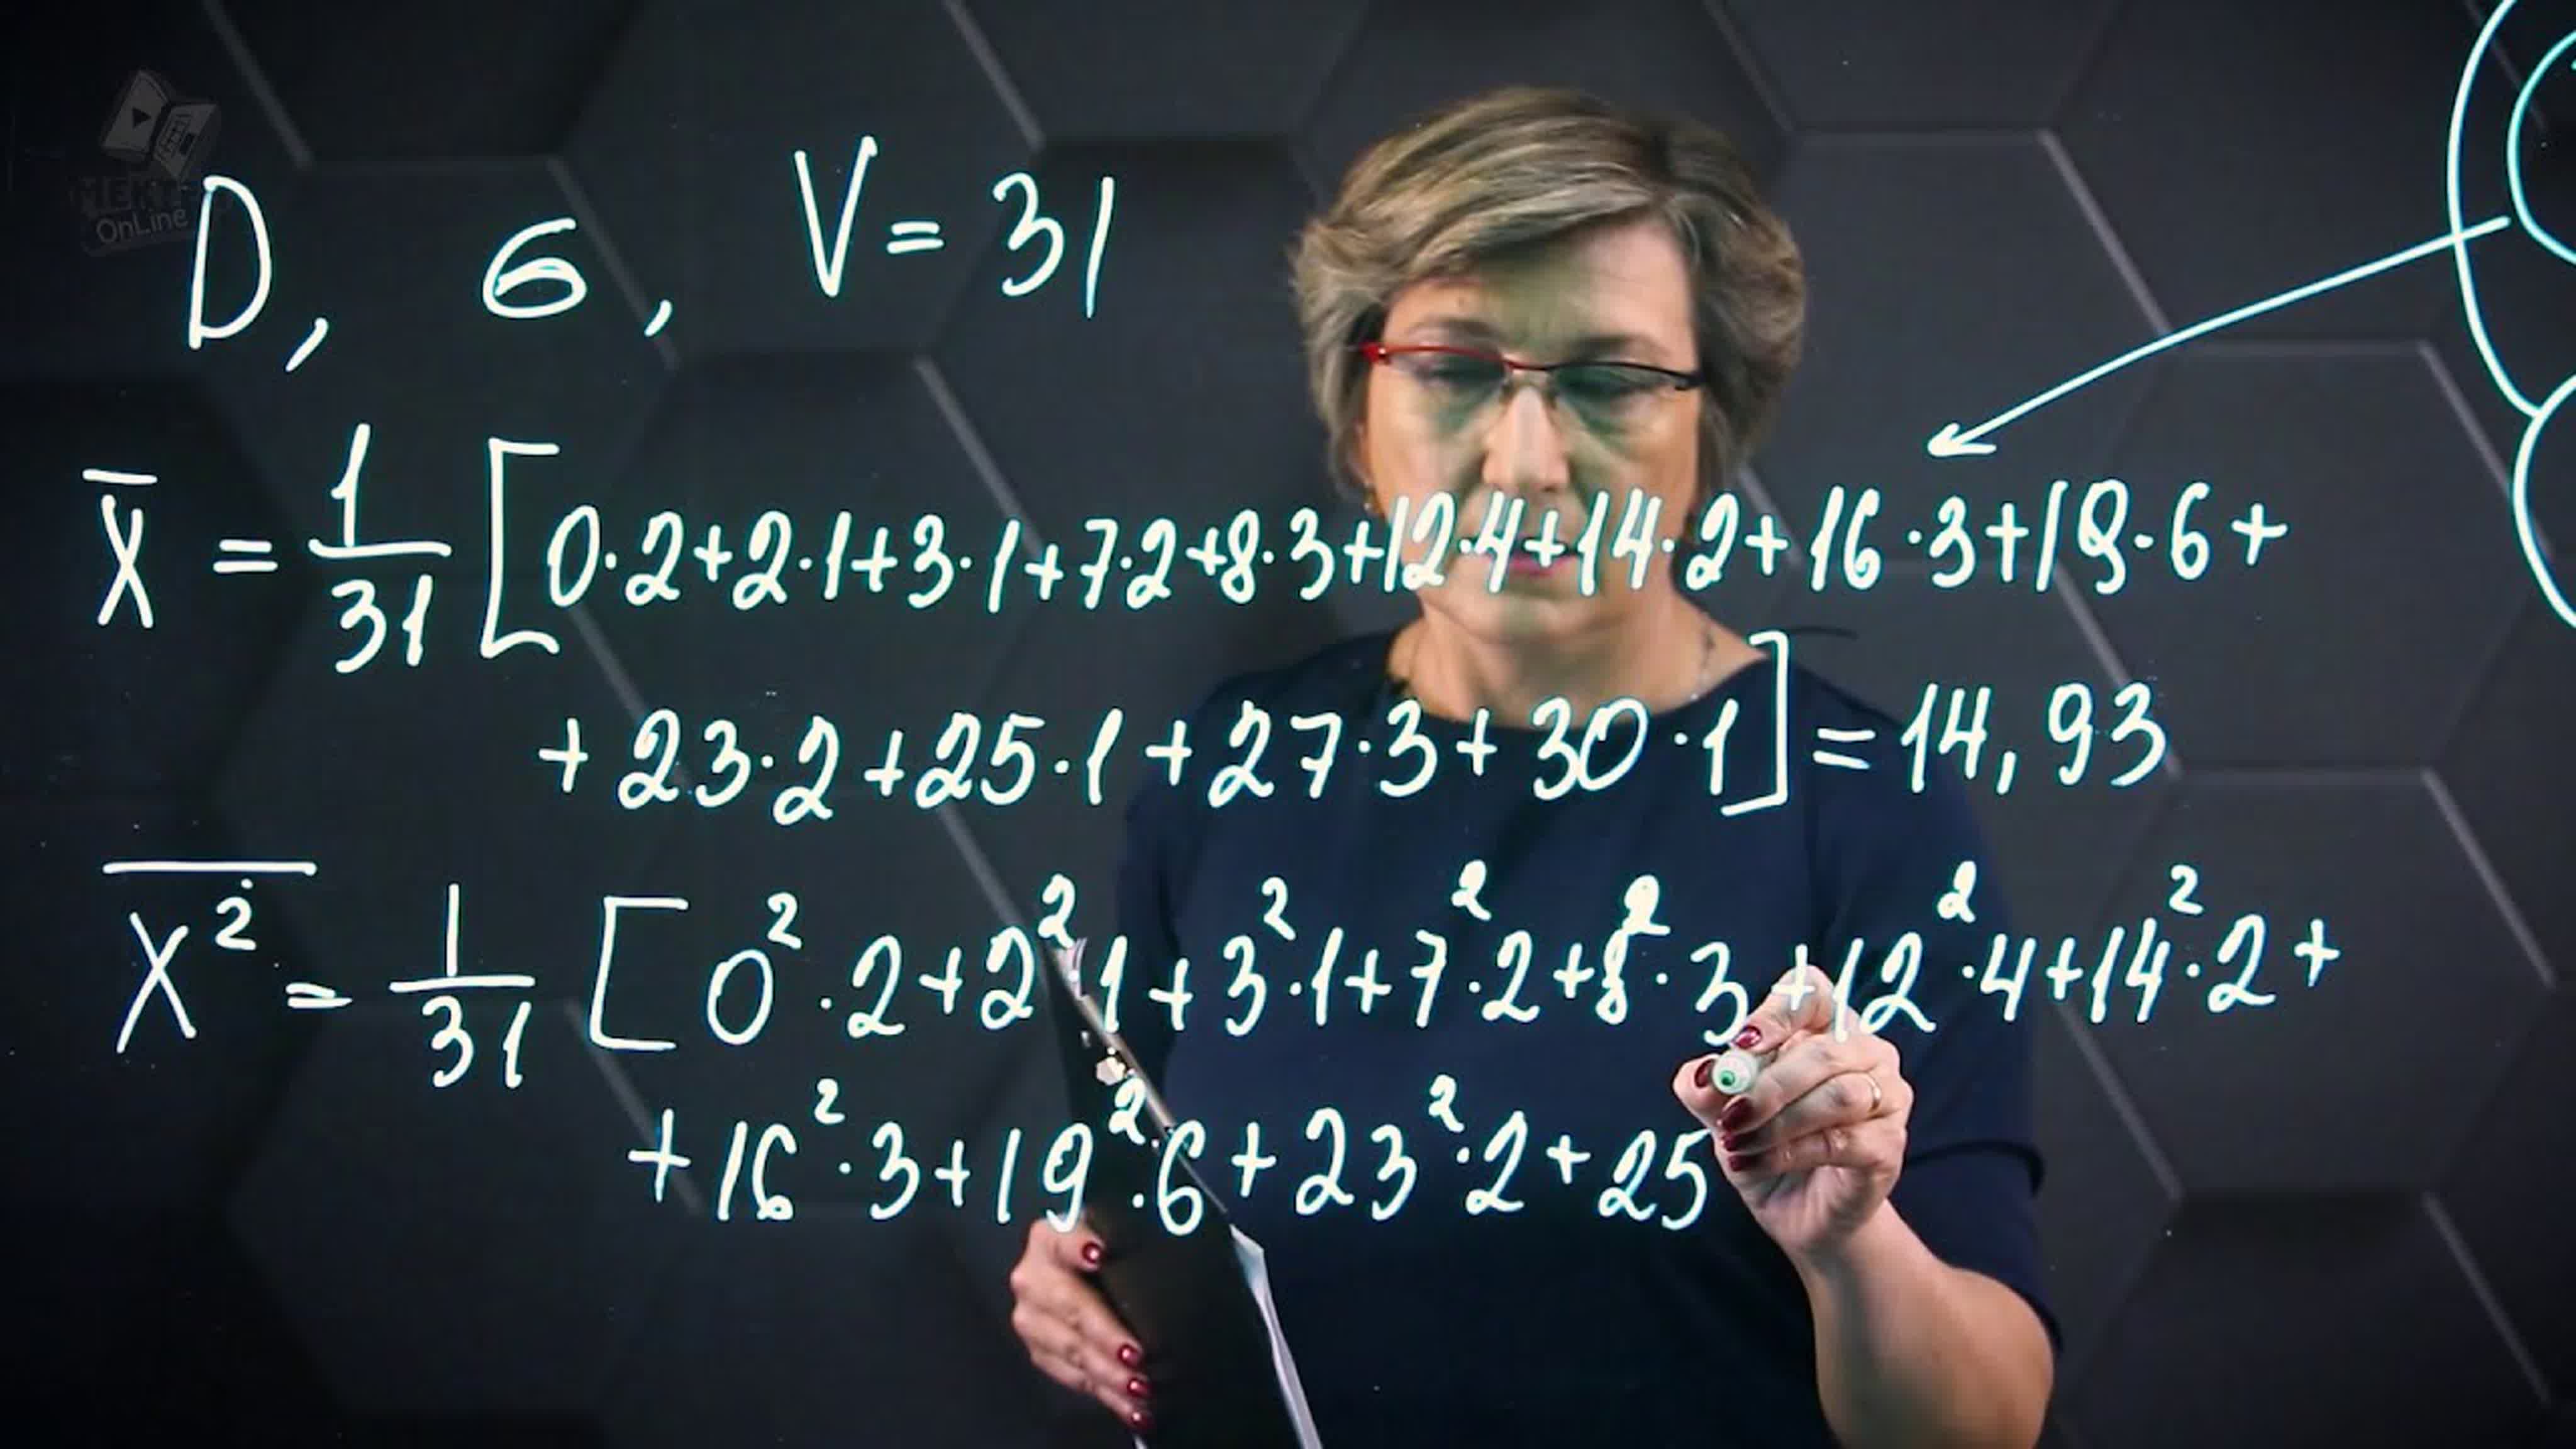 OnLine
D, б, V = 31
X̅ = 1/31 [0·2+2·1+3·1+7·2+8·3+12·4+14·2+16·3+19·6+
+ 23·2+25·1+27·3+30·1] = 14,93
X̅²̅ = 1/31 [0²·2+2²·1+3²·1+7²·2+8²·3+12²·4+14²·2+
+16²·3+19²·6+23²·2+25